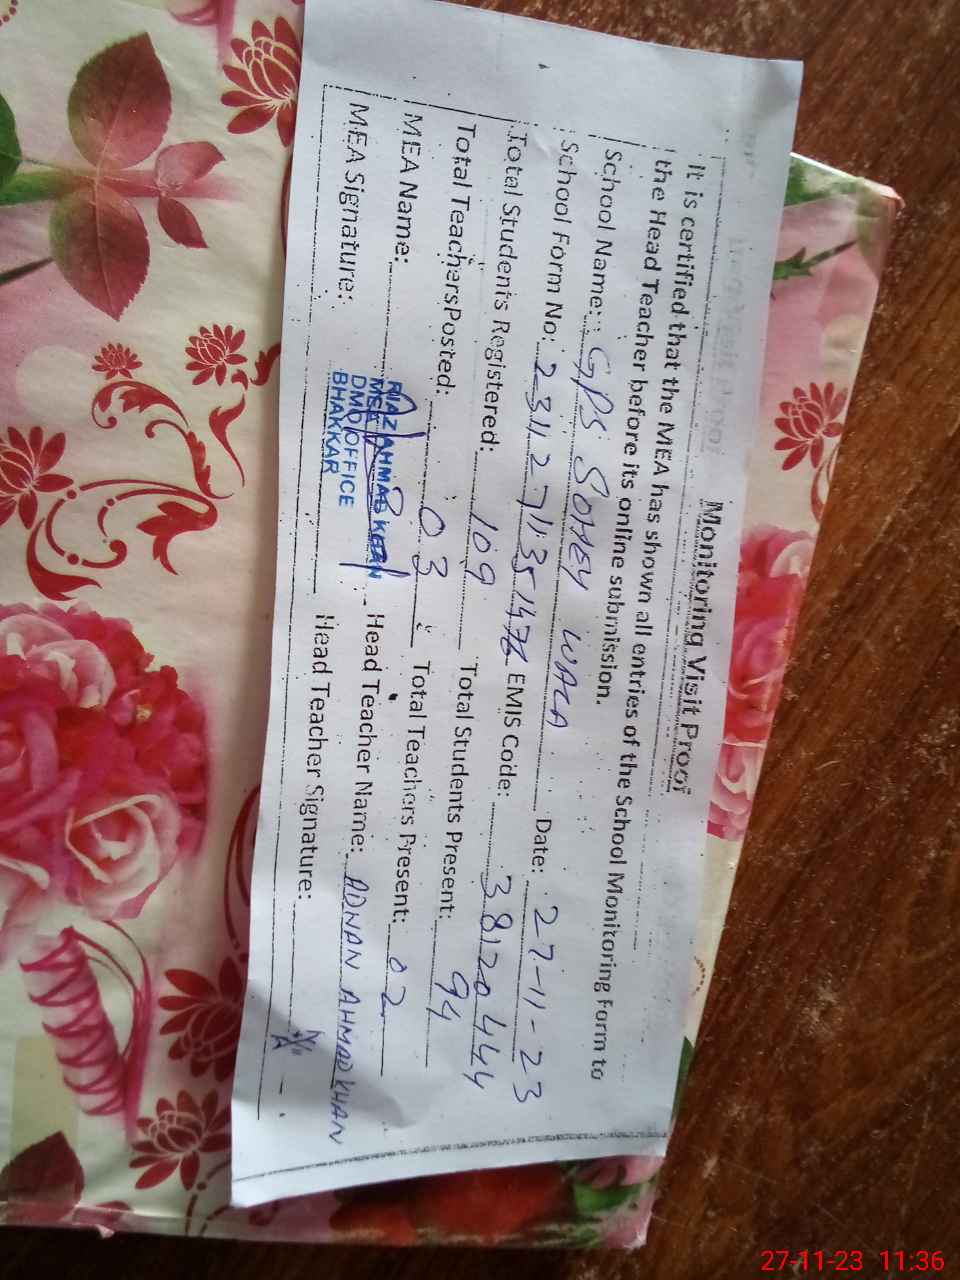 Monitoring Visit Proof
It is certified that the MEA has shown all entries of the School Monitoring Form to
the Head Teacher before its online submission.
School Name: GPS SOHEY WALA Date: 27-11-23
School Form No: EMIS Code: 38120444
Total Students Registered: 109 Total Students Present: 94
Total TeachersPosted: 03 Total Teachers Present: 02
MEA Name: RIAZ AHMAD KHAN Head Teacher Name: ADNAN AHMAD KHAN
MEA
MEA Signature: DMO OFFICE Head Teacher Signature:
BHAKKAR
27-11-23 11:36